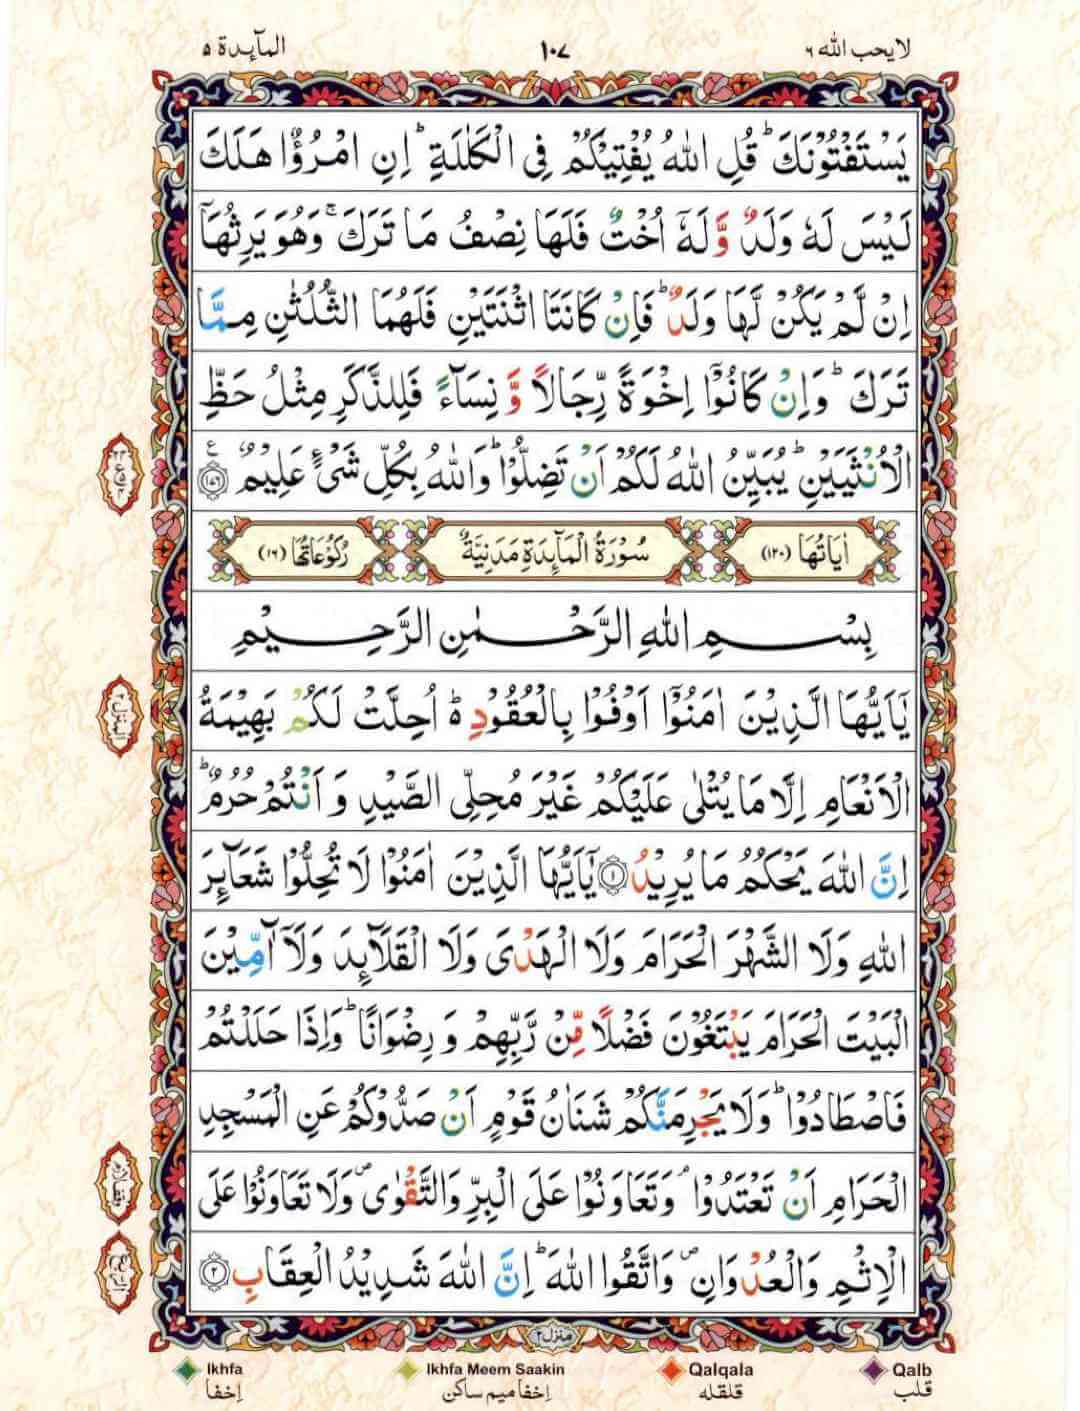 لا يحب الله ٦ ١٠٧ المآئدة ٥
يَسْتَفْتُوْنَكَ ؕ قُلِ اللّٰهُ يُفْتِيْكُمْ فِى الْكَلٰلَةِ ؕ اِنِ امْرُؤٌا هَلَكَ
لَيْسَ لَهٗ وَلَدٌ وَّ لَهٗۤ اُخْتٌ فَلَهَا نِصْفُ مَا تَرَكَ ۚ وَهُوَ يَرِثُهَاۤ
اِنْ لَّمْ يَكُنْ لَّهَا وَلَدٌ ؕ فَاِنْ كَانَتَا اثْنَتَيْنِ فَلَهُمَا الثُّلُثٰنِ مِمَّا
تَرَكَ ؕ وَاِنْ كَانُوْۤا اِخْوَةً رِّجَالًا وَّ نِسَآءً فَلِلذَّكَرِ مِثْلُ حَظِّ
الْاُنْثَيَيْنِ ؕ يُبَيِّنُ اللّٰهُ لَكُمْ اَنْ تَضِلُّوْا ؕ وَاللّٰهُ بِكُلِّ شَىْءٍ عَلِيْمٌ ۧ ﴿۱۷۶﴾
اٰيَاتُهَا (١٢٠) سُوْرَةُ الْمَآئِدَةِ مَدَنِيَّةٌ رُكُوْعَاتُهَا (١٦)
بِسْمِ اللّٰهِ الرَّحْمٰنِ الرَّحِيْمِ
يٰۤاَيُّهَا الَّذِيْنَ اٰمَنُوْۤا اَوْفُوْا بِالْعُقُوْدِ ؕ اُحِلَّتْ لَكُمْ بَهِيْمَةُ
الْاَنْعَامِ اِلَّا مَا يُتْلٰى عَلَيْكُمْ غَيْرَ مُحِلِّى الصَّيْدِ وَ اَنْتُمْ حُرُمٌ ؕ
اِنَّ اللّٰهَ يَحْكُمُ مَا يُرِيْدُ ﴿۱﴾ يٰۤاَيُّهَا الَّذِيْنَ اٰمَنُوْا لَا تُحِلُّوْا شَعَآئِرَ
اللّٰهِ وَلَا الشَّهْرَ الْحَرَامَ وَلَا الْهَدْىَ وَلَا الْقَلَآئِدَ وَلَاۤ آٰمِّيْنَ
الْبَيْتَ الْحَرَامَ يَبْتَغُوْنَ فَضْلًا مِّنْ رَّبِّهِمْ وَ رِضْوَانًا ؕ وَاِذَا حَلَلْتُمْ
فَاصْطَادُوْا ؕ وَلَا يَجْرِمَنَّكُمْ شَنَاٰنُ قَوْمٍ اَنْ صَدُّوْكُمْ عَنِ الْمَسْجِدِ
الْحَرَامِ اَنْ تَعْتَدُوْا ۘ وَتَعَاوَنُوْا عَلَى الْبِرِّ وَالتَّقْوٰى ۖ وَلَا تَعَاوَنُوْا عَلَى
الْاِثْمِ وَالْعُدْوَانِ ۖ وَاتَّقُوا اللّٰهَ ؕ اِنَّ اللّٰهَ شَدِيْدُ الْعِقَابِ ﴿۲﴾
منزل ٢
Ikhfa Ikhfa Meem Saakin Qalqala Qalb
اِخفا اِخفا میم ساکن قلقله قلب